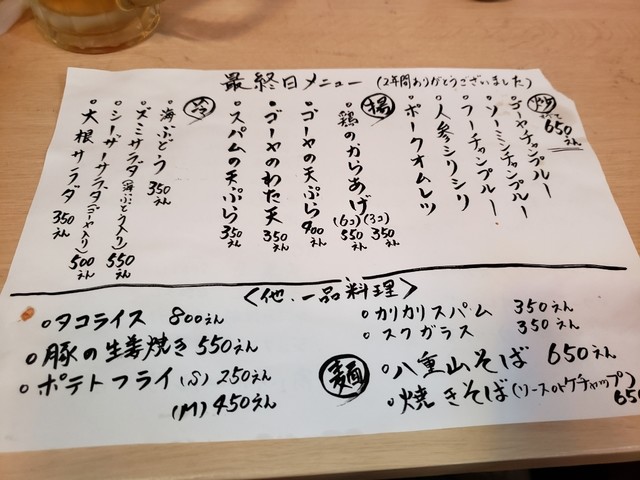 最終日メニュー (2年間ありがとうございました)
炒 すべて 650えん
・ゴーヤチャンプルー
・ソーミンチャンプルー
・フーチャンプルー
・人参シリシリ
・ポークオムレツ
揚
・鶏のからあげ (6コ)550えん (3コ)350えん
・ゴーヤの天ぷら 400えん
・ゴーヤのわた天 350えん
・スパムの天ぷら 350えん
冷
・海ぶどう 350えん
・ズミサラダ(海ぶどう入り) 550えん
・シーザーサラダ(ゴーヤ入り) 500えん
・大根サラダ 350えん
<他、一品料理>
○タコライス 800えん
○豚の生姜焼き 550えん
○ポテトフライ (S) 250えん
(M) 450えん
○カリカリスパム 350えん
○スクガラス 350えん
麺
○八重山そば 650えん
○焼きそば(ソースorケチャップ) 650